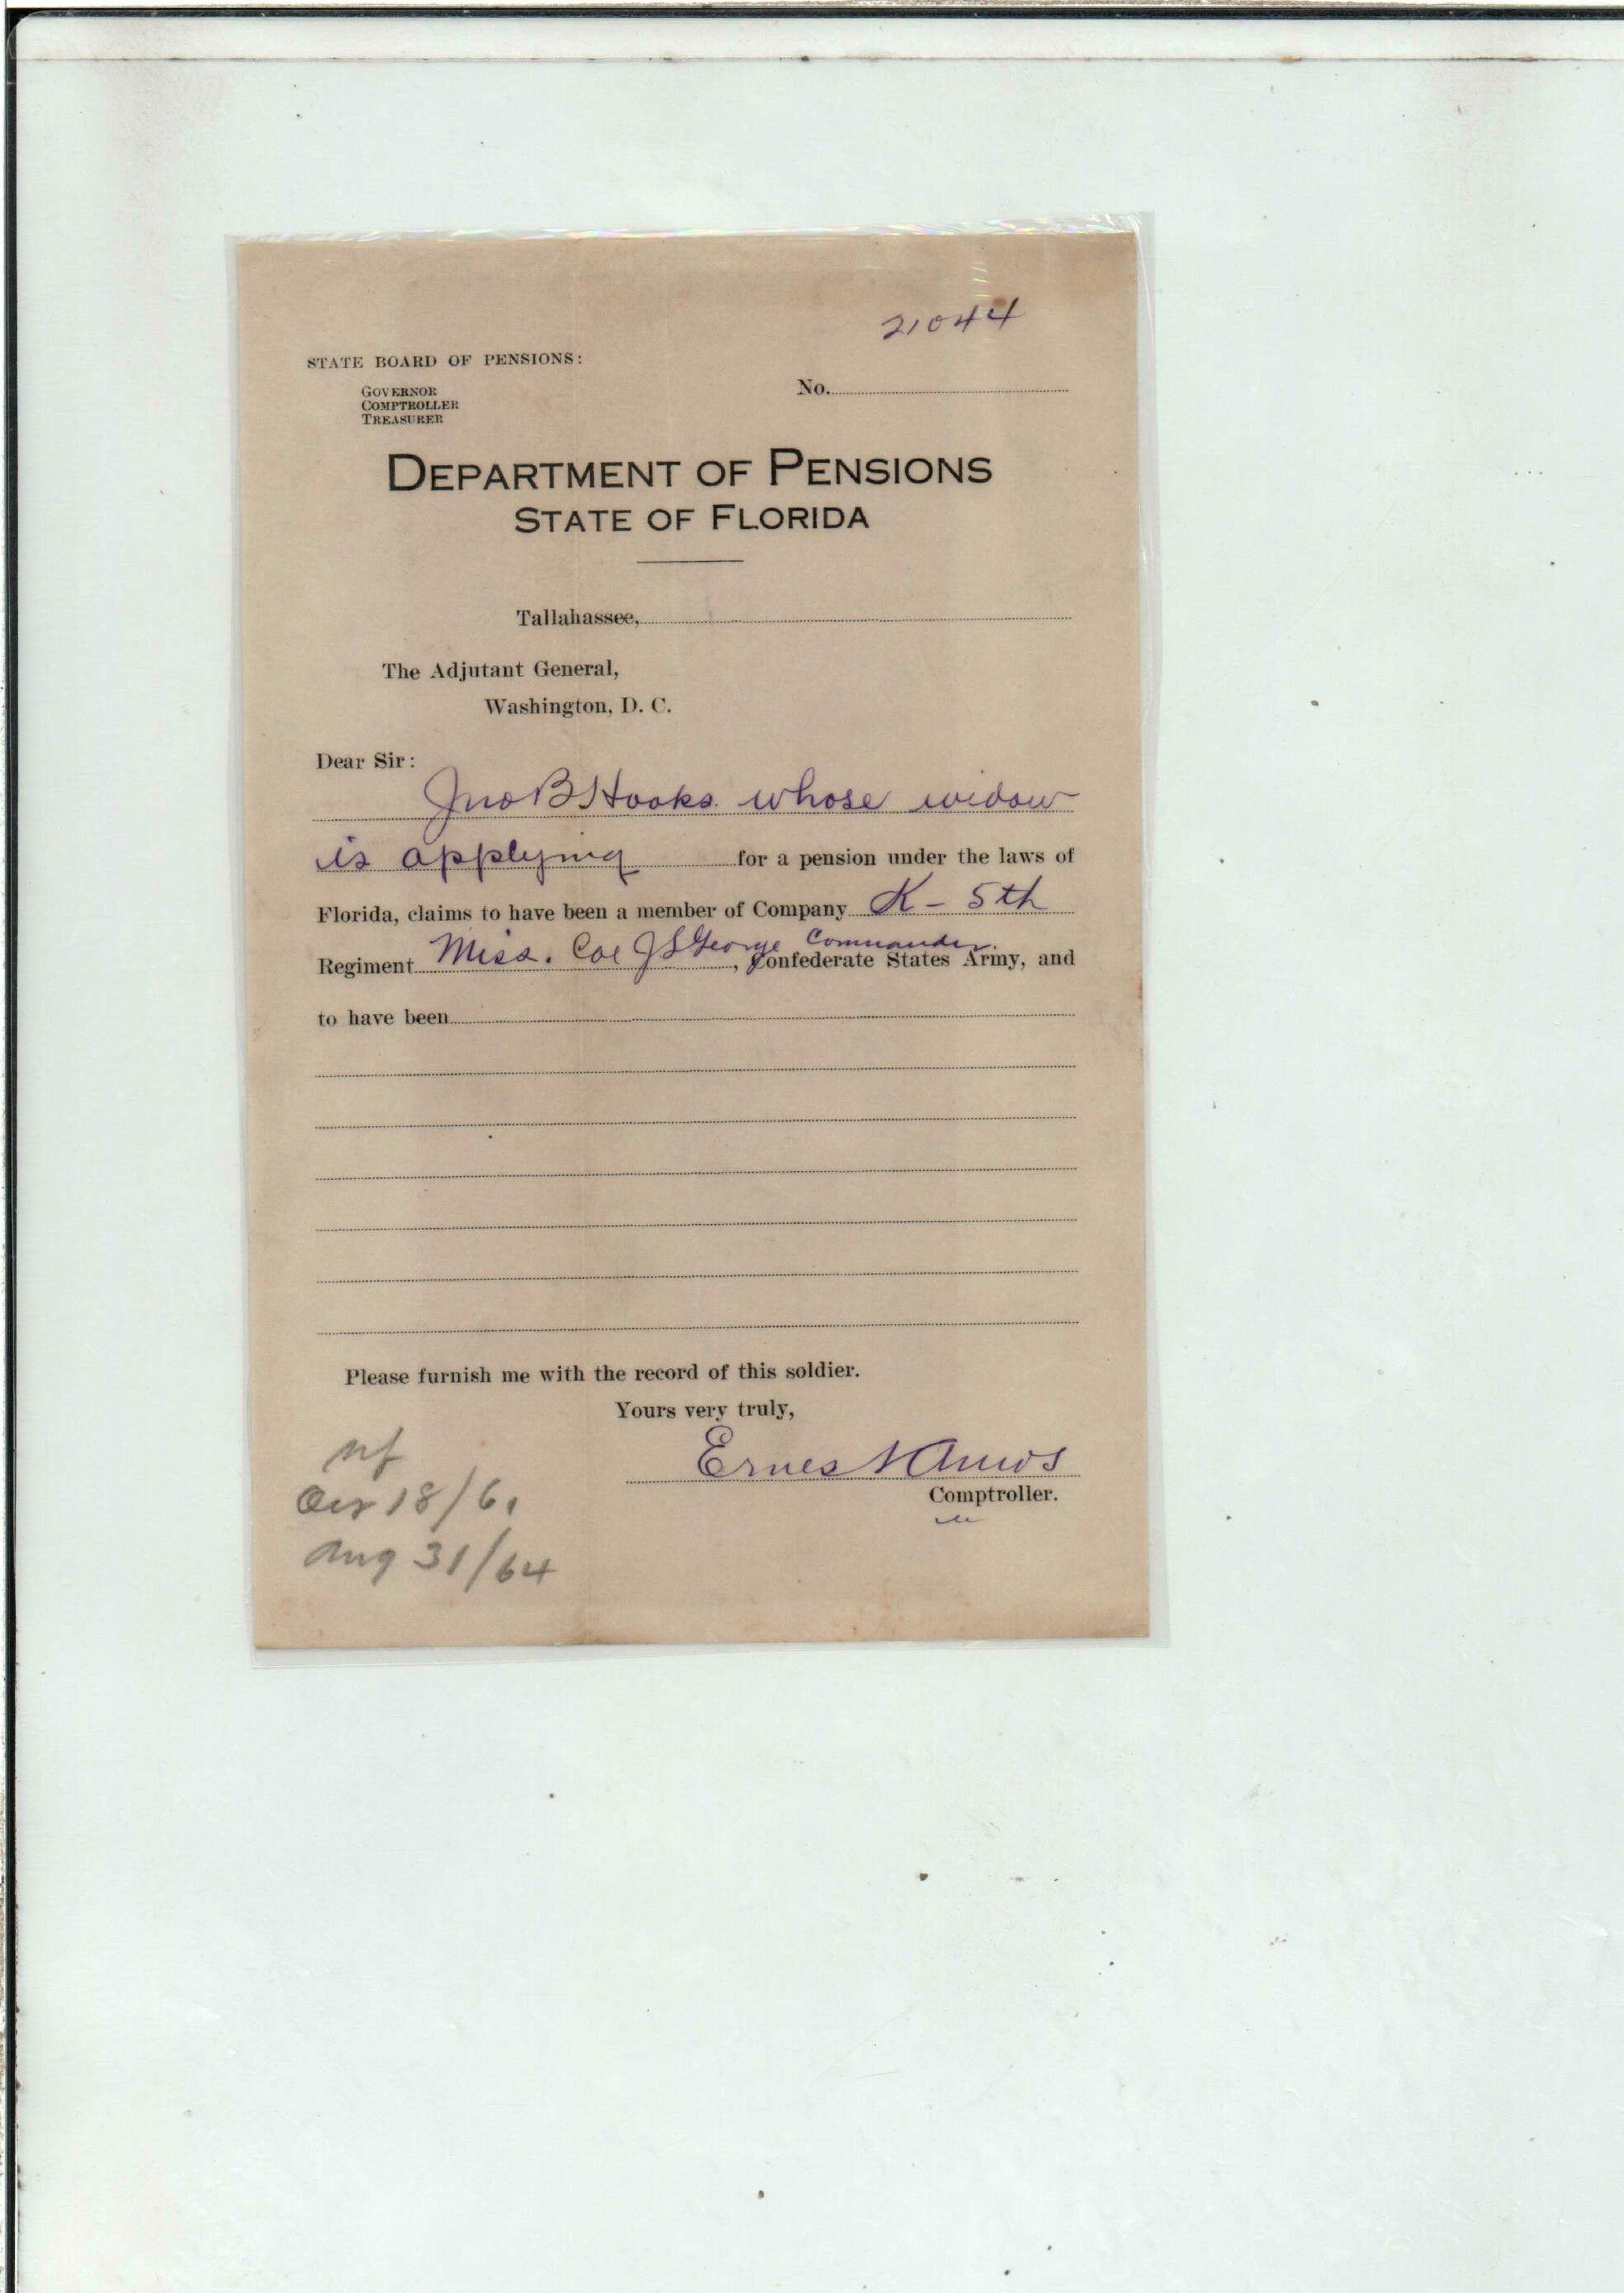 21044
STATE BOARD OF PENSIONS:
GOVERNOR
COMPTROLLER
TREASURER
No.
DEPARTMENT OF PENSIONS
STATE OF FLORIDA
Tallahassee,
The Adjutant General,
Washington, D. C.
Dear Sir:
Jno B Hooks whose widow
is applying for a pension under the laws of
Florida, claims to have been a member of Company K - 5th
Regiment Miss. Col J S George Commander, Confederate States Army, and
to have been
Please furnish me with the record of this soldier.
Yours very truly,
Ernest Amos
Comptroller.
nf
18/61
Aug 31/64